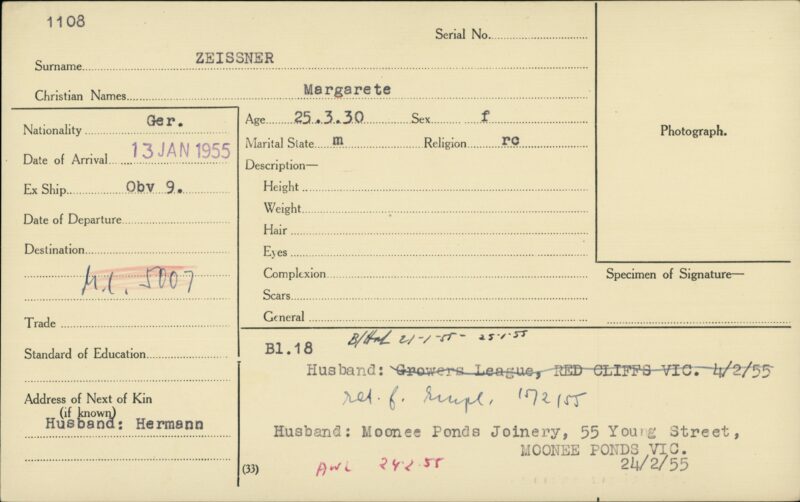 1108
Serial No.
Surname ZEISSNER
Christian Names Margarete
Nationality Ger.
Date of Arrival 13 JAN 1955
Ex Ship Obv 9.
Date of Departure
Destination
5007
Trade
Standard of Education
Address of Next of Kin
(if known)
Husband: Hermann
Age 25.3.30 Sex f
Marital State m Religion rc
Description—
Height
Weight
Hair
Eyes
Complexion
Scars
General
Photograph.
Specimen of Signature—
21-1-55 - 25-1-55
Bl.18
Husband: Growers League, RED CLIFFS VIC. 4/2/55
ret. f. Empl. 15/2/55
Husband: Moonee Ponds Joinery, 55 Young Street,
MOONEE PONDS VIC.
24/2/55
(33)
AWL 24-2-55